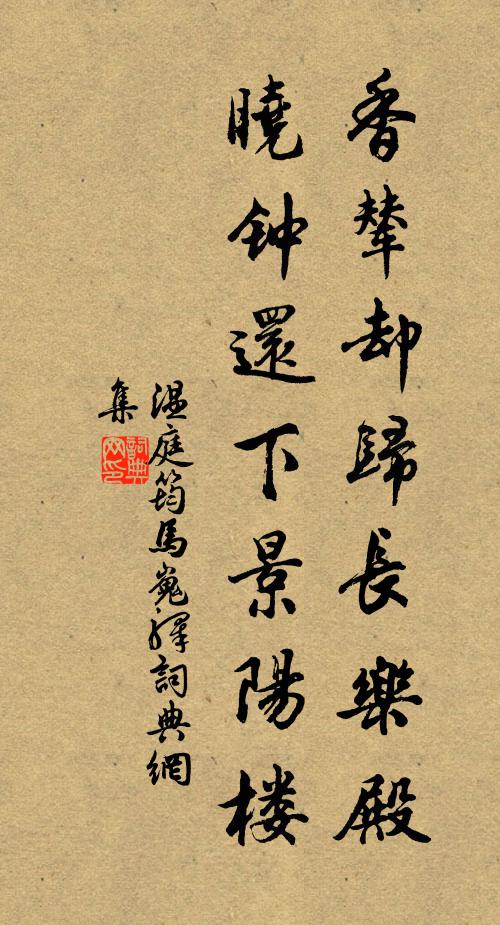 香輦却歸長樂殿
曉钟還下景陽楼
温庭筠馬嵬驛詞典網
集
詞典网印